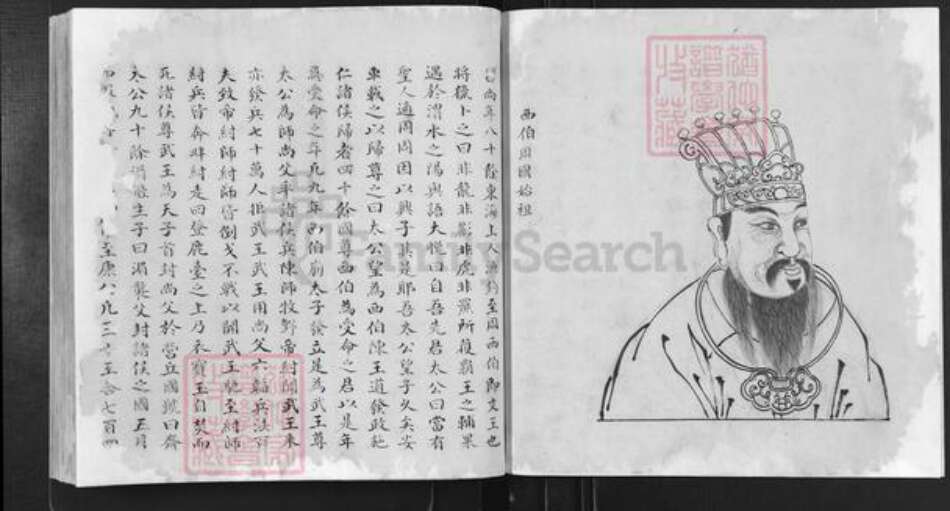 西伯周國始祖
尚年八十餘東海上人漁釣至周西伯即文王也
將獵卜之曰非龍非彲非虎非羆所獲霸王之輔果
遇於渭水之陽與語大悅曰自吾先君太公曰當有
聖人適周周因以興子其是耶吾太公望子久矣
車載之以歸尊之曰太公望為西伯陳王道發政施
仁諸侯歸者四十餘國尊西伯為受命之君以是年
為受命之年死九年西伯崩太子發立是為武王尊
太公為師尚父率諸侯兵陳師牧野帝紂聞武王來
亦發兵七十萬人拒武王武王用尚父六韜兵法
夫致帝紂師紂師皆倒戈不戰以開武王馳至紂師
紂兵皆奔畔紂走回登鹿臺之上乃衣寶玉自焚而
死諸侯尊武王為天子首封尚父於營丘國號曰齊
太公九十餘生子曰襲父封諸侯之國五月
至康八九三至七百
FamilySearch